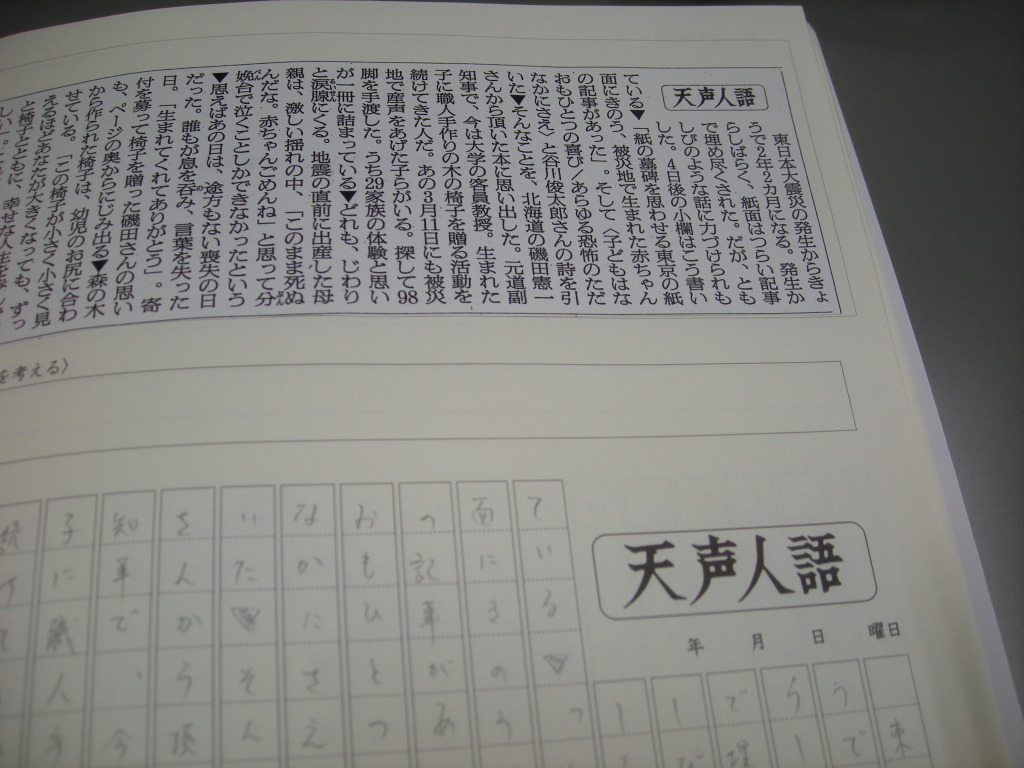 天声人語
東日本大震災の発生からきょ
うで2年2カ月になる。発生か
らしばらく、紙面はつらい記事
で埋め尽くされた。だが、とも
しびのような話に力づけられも
した。4日後の小欄はこう書い
ている▼「紙の墓碑を思わせる東京の紙
面にきのう、被災地で生まれた赤ちゃん
の記事があった」。そして〈子どもはな
おもひとつの喜び/あらゆる恐怖のただ
なかにさえ〉と谷川俊太郎さんの詩を引
いた▼そんなことを、北海道の磯田憲一
さんから頂いた本に思い出した。元道副
知事で、今は大学の客員教授。生まれた
子に職人手作りの木の椅子を贈る活動を
続けてきた人だ。あの3月11日にも被災
地で産声をあげた子らがいる。探して98
脚を手渡した。うち29家族の体験と思い
が一冊に詰まっている▼どれも、じわり
と涙腺にくる。地震の直前に出産した母
親は、激しい揺れの中、「このまま死ぬ
んだな。赤ちゃんごめんね」と思って分
娩台で泣くことしかできなかったという
▼思えばあの日は、途方もない喪失の日
だった。誰もが息を呑み、言葉を失った
日。「生まれてくれてありがとう」。寄
付を募って椅子を贈った磯田さんの思い
も、ページの奥からにじみ出る▼森の木
から作られた椅子は、幼児のお尻に合わ
せている。「この椅子が小さく小さく見
えるほどあなたが大きくなっても、ずっ
と椅子とともに、幸せな人生を
を考える〉
天声人語
年 月 日 曜日
東
うで
らし
で埋
しび
し
ている▼
面にきのう
の記事があ
おもひとつ
なかにさえ
いた▼そん
さんから頂
知事で、今
子に職人手
続け